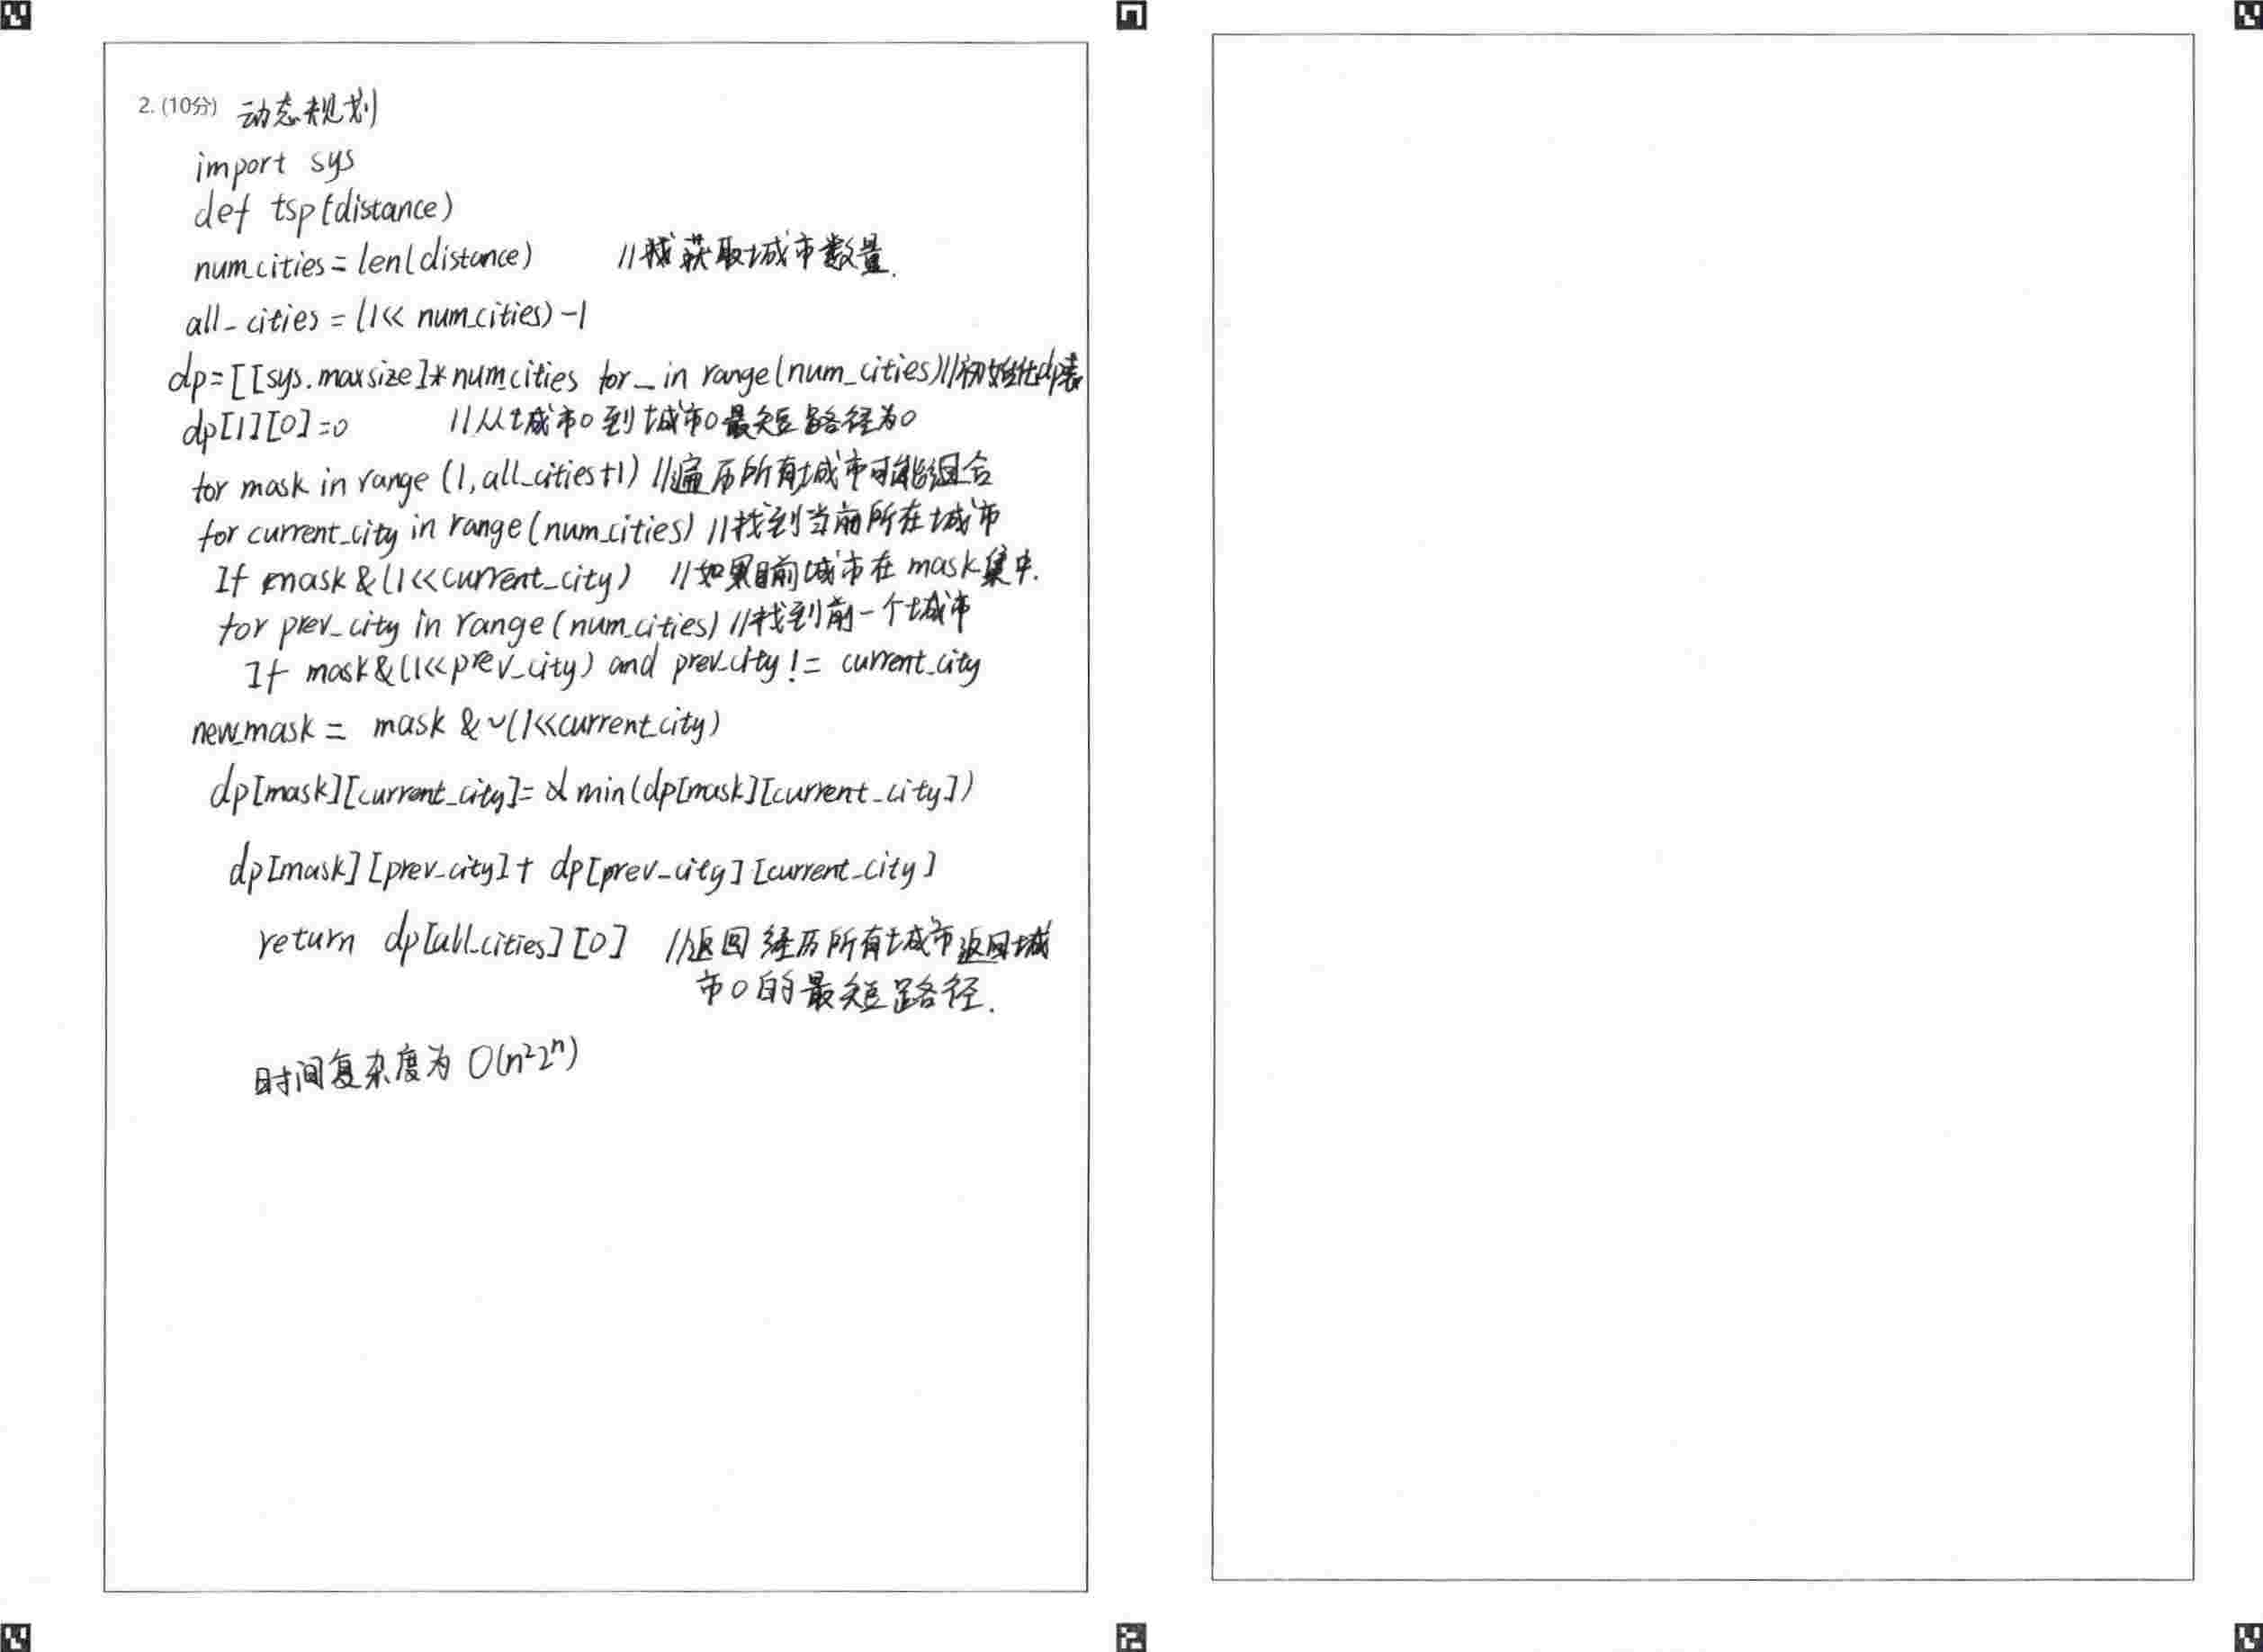 2. (10分) 动态规划
import sys
def tsp(distance)
num_cities = len(distance) //获取城市数量.
all_cities = (1<< num_cities) -1
dp=[[sys.maxsize]*num_cities for _ in range(num_cities) //初始化dp表
dp[1][0]=0 //从城市0到城市0最短路径为0
for mask in range (1, all_cities+1) //遍历所有城市可能组合
for current_city in range(num_cities) //找到当前所在城市
If mask & (1<<current_city) //如果目前城市在mask集中.
for prev_city in range(num_cities) //找到前一个城市
If mask&(1<<prev_city) and prev_city != current_city
new_mask = mask & ~(1<<current_city)
dp[mask][current_city]= min(dp[mask][current_city])
dp[mask][prev_city]+ dp[prev_city][current_city]
return dp[all_cities][0] //返回经历所有城市返回城
市0的最短路径.
时间复杂度为 O(n²2ⁿ)